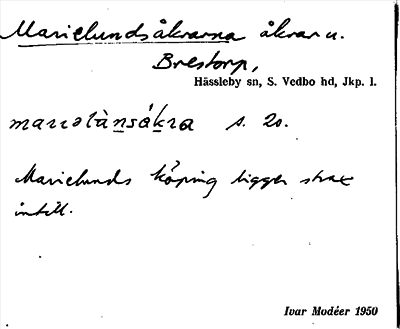 Marielundsåkrarna åkrar u.
Brestorp,
Hässleby sn, S. Vedbo hd, Jkp. l.
marrəlànsákra s. 20.
Marielunds köping ligger strax
intill.
Ivar Modéer 1950